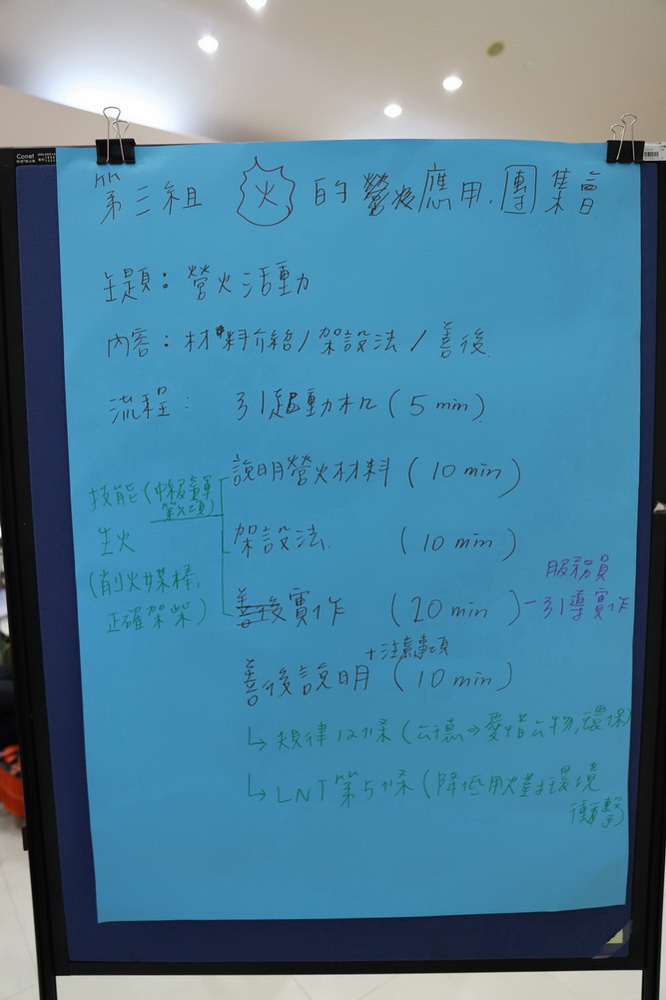 Conet
第三組 火 的營火應用.團集會
主題：營火活動
內容：材料介紹/架設法/善後
流程： 引起動机(5 min)
說明營火材料 (10 min)
技能(中級童軍
第六項)
生火
(削火媒棒,
正確架柴)
架設法. (10 min)
實作 (20 min)-引導實作
服務員
+注意事項
善後說明 (10 min)
↳規律12條(公德⇒愛惜公物,環保)
↳LNT第5條(降低用火對環境
衝擊)